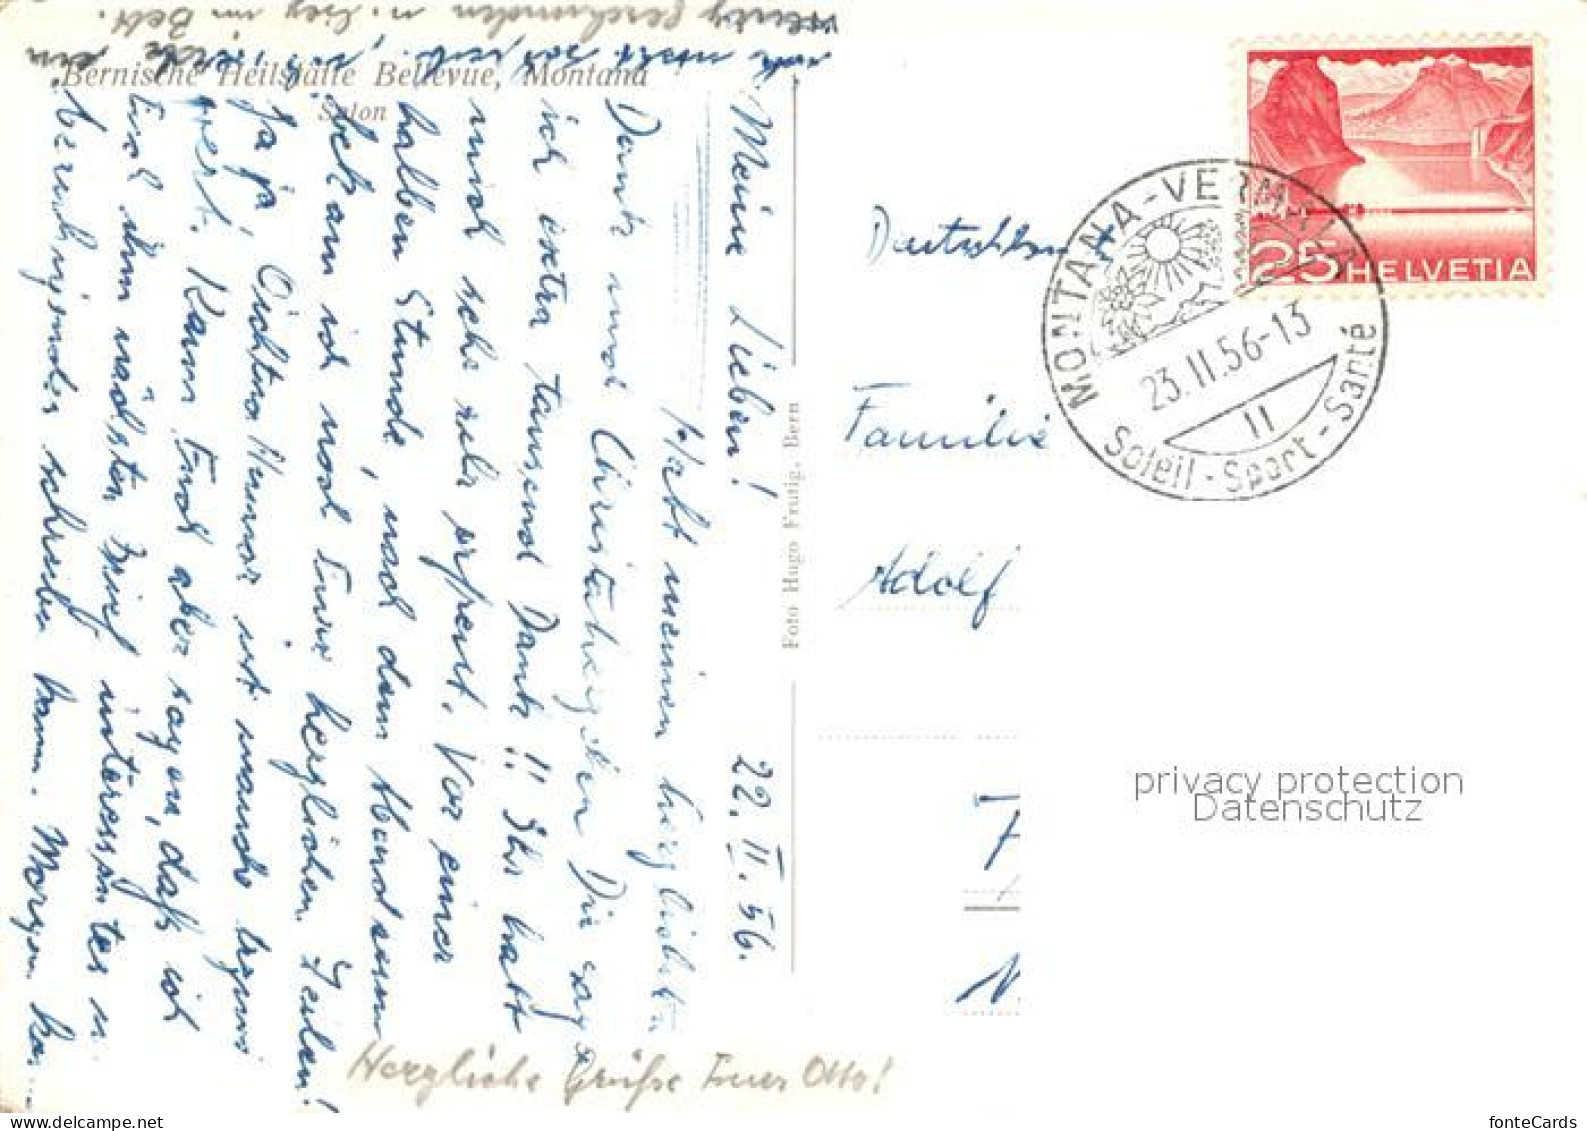 Bernische Heilstätte Bellevue, Montana
Salon
22. II. 56.
Meine Lieben!
Habt meinen herzlichsten
Dank und Die sag
ich extra tausend Dank!! Ihr habt
mich sehr sehr erfreut. Vor einer
halben Stunde, nach dem Abendessen
bekam ich noch Eure herzlichen Zeilen!
Ja ja, Humor ist manches
wert. Kann Euch aber sagen, daß ich
Euch im nächsten Brief interessantes u.
beruhigendes schreiben kann. Morgen
Herzliche Grüße Euer Otto!
Foto Hugo Frutig, Bern
Deutschland
Familie
Adolf
25 HELVETIA
MONTANA-VERMALA
23.II.56-13
II
Soleil-Sport-Santé
privacy protection
Datenschutz
fonteCards